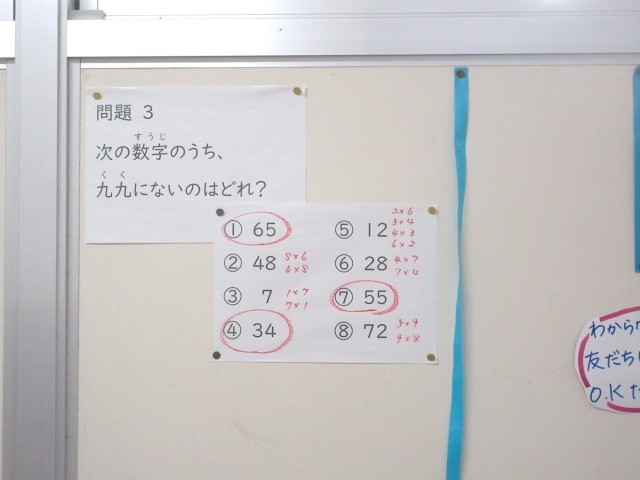 問題 3
すうじ
次の数字のうち、
くく
九九にないのはどれ？
① 65
② 48 8×6
6×8
③ 7 1×7
7×1
④ 34
⑤ 12 2×6
3×4
4×3
6×2
⑥ 28 4×7
7×4
⑦ 55
⑧ 72 8×9
9×8
わから
友だち
O.K